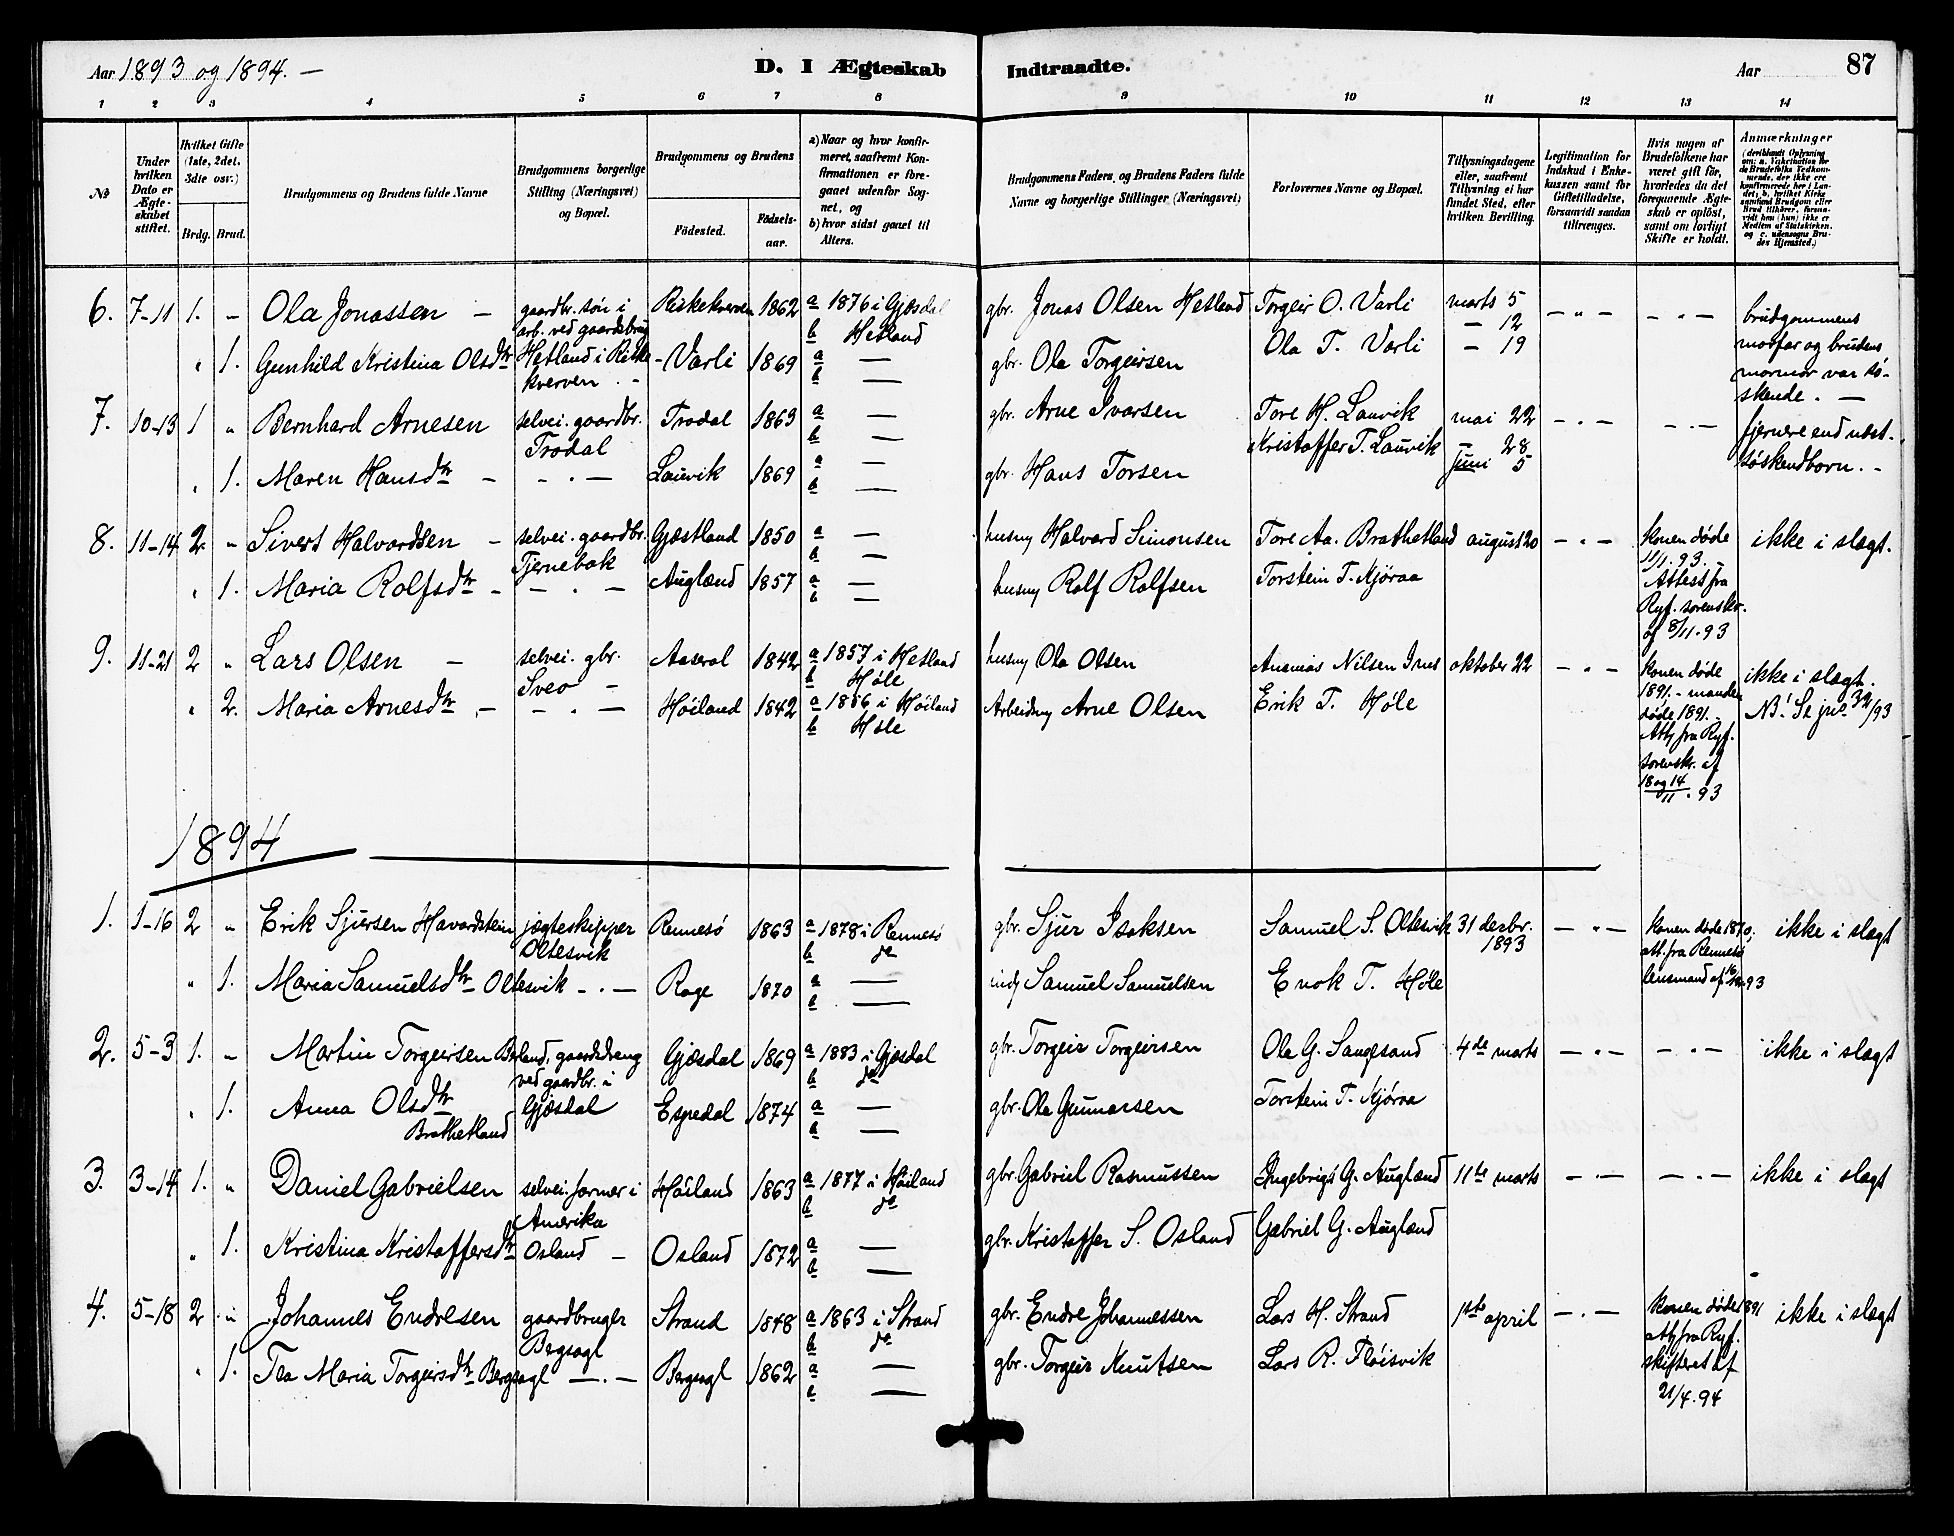 Aar 1893 og 1894. —
D. I Ægteskab Indtraadte.
Aar 87
1 2 3 4 5 6 7 8 9 10 11 12 13 14
No
Under hvilken Dato er Ægteskabet stiftet.
Hvilket Gifte (1ste, 2det, 3die osv.)
Brdg. Brud.
Brudgommens og Brudens fulde Navne
Brudgommens borgerlige Stilling (Næringsvei) og Bopæl.
Brudgommens og Brudens
Fødested. Fødselsaar.
a) Naar og hvor konfirmeret, saafremt Konfirmationen er foregaaet udenfor Sognet, og
b) hvor sidst gaaet til Alters.
Brudgommens Faders, og Brudens Faders fulde Navne og borgerlige Stillinger (Næringsvei)
Forlovernes Navne og Bopæl.
Tillysningsdagene eller, saafremt Tillysning ei har fundet Sted, efter hvilken Bevilling.
Legitimation for Indskud i Enkekassen samt for Giftetilladelse, forsaavidt saadan tiltrænges.
Hvis nogen af Brudefolkene har været gift før, hvorledes da det foregaaende Ægteskab er opløst, samt om lovligt Skifte er holdt.
Anmærkninger
6. 7-11 1. „ Ola Jonassen — gaardbr. søn i Riskekverven 1862 a 1876 i Gjæsdal gbr. Jonas Olsen Hetland Torgeir O. Varli marts 5 — „ — — „ — brudgommens
arb. ved gaardsbrug b Hetland — 12
„ 1. Gunhild Kristina Olsdtr Hetland i Riske- Varli 1869 a — gbr. Ola Torgeirsen Ola T. Varli — 19 morfar og brudens
kverven. — b — mormor var sø-
skende. —
7. 10-13 1 „ Bernhard Arnesen selvei. gaardbr. Trodal 1863 a — gbr. Arne Ivarsen Tore H. Lauvik mai 22 — „ — — „ — fjernere end næst-
Trodal b — Kristoffer T. Lauvik — 28
„ 1. Maren Hansdtr — — „ — Lauvik 1869 a — gbr. Hans Torsen juni 5 søskendborn. —
b —
8. 11-14 2. „ Sivert Halvardsen — selvei. gaardbr. Gjæstland 1850 a — husmg Halvard Simonsen Tore Aa. Brathetland august 20 — „ — Konen døde ikke i slægt.
Tjernebak b — 11/1.93.
„ 1. Maria Rolfsdtr — — „ — Augland 1857 a — husmg Rolf Rolfsen Torstein T. Kjøraa Attest fra
b — Ryf. sorenskr.
af 8/11.93
9. 11-21 2 „ Lars Olsen — selvei. gbr. Aaseral 1842 a 1857 i Hetland husmg Ola Olsen Ananias Nilsen Ims oktober 22 — „ — Konen døde ikke i slægt.
Sveo — b Høle 1891. — manden
„ 2. Maria Arnesdtr. — — „ — Høiland 1842 a 1856 i Høiland Arbeidsmg Arne Olsen Erik T. Høle døde 1891.
b Høle Att fra Ryf.
sorenskr. af
18 og 14/11.93
1894
1. 1-16 2 „ Erik Sjursen Havardstein jægteskipper Rennesø 1863 a 1878 i Rennesø gbr. Sjur Isaksen Samuel S. Oltesvik 31 decbr. — „ — Konen døde 1870, ikke i slægt
Oltesvik b do 1893 att. fra Rennesø
„ 1. Maria Samuelsdtr Oltesvik — „ — Rage 1870 a — indg Samuel Samuelsen Enok T. Høle lensmand af
b —
2. 5-3 1. „ Martin Torgeirsen Berland, gaardsdreng Gjæsdal 1869 a 1883 i Gjæsdal gbr. Torgeir Torgeirsen Ola G. Sangesand 4de marts — „ — — „ — ikke i slægt
ved gaardbr. i b do
„ 1. Anna Olsdtr Gjæsdal Espedal 1874 a — gbr. Ola Gunnarsen Torstein T. Kjøraa
Brathetland b —
3. 3-14 1. „ Daniel Gabrielsen selvei. farmer i Høiland 1863 a 1877 i Høiland gbr. Gabriel Rasmussen Ingebrigt G. Augland 11te marts — „ — — „ — ikke i slægt
Amerika b do
„ 1. Kristina Kristoffersdtr Osland — Osland 1872 a — gbr. Kristoffer S. Osland Gabriel G. Augland
b —
4. 5-18 2 „ Johannes Endresen gaardbruger Strand 1848 a 1863 i Strand gbr. Endre Johannessen Lars H. Strand 1ste april — „ — Konen døde 1891 ikke i slægt
Bergsagl b do Att fra Ryf.
„ 1. Tea Maria Torgeirsdtr Bergsagl — „ — Bergsagl 1862 a — gbr. Torgeir Knutsen Lars R. Fløisvik skifteret af
b — 21/4.94